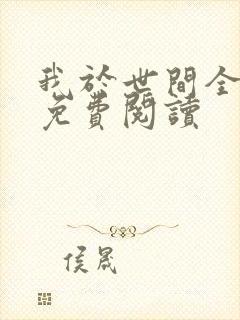 我於世間全
免費閱讀
侯晟